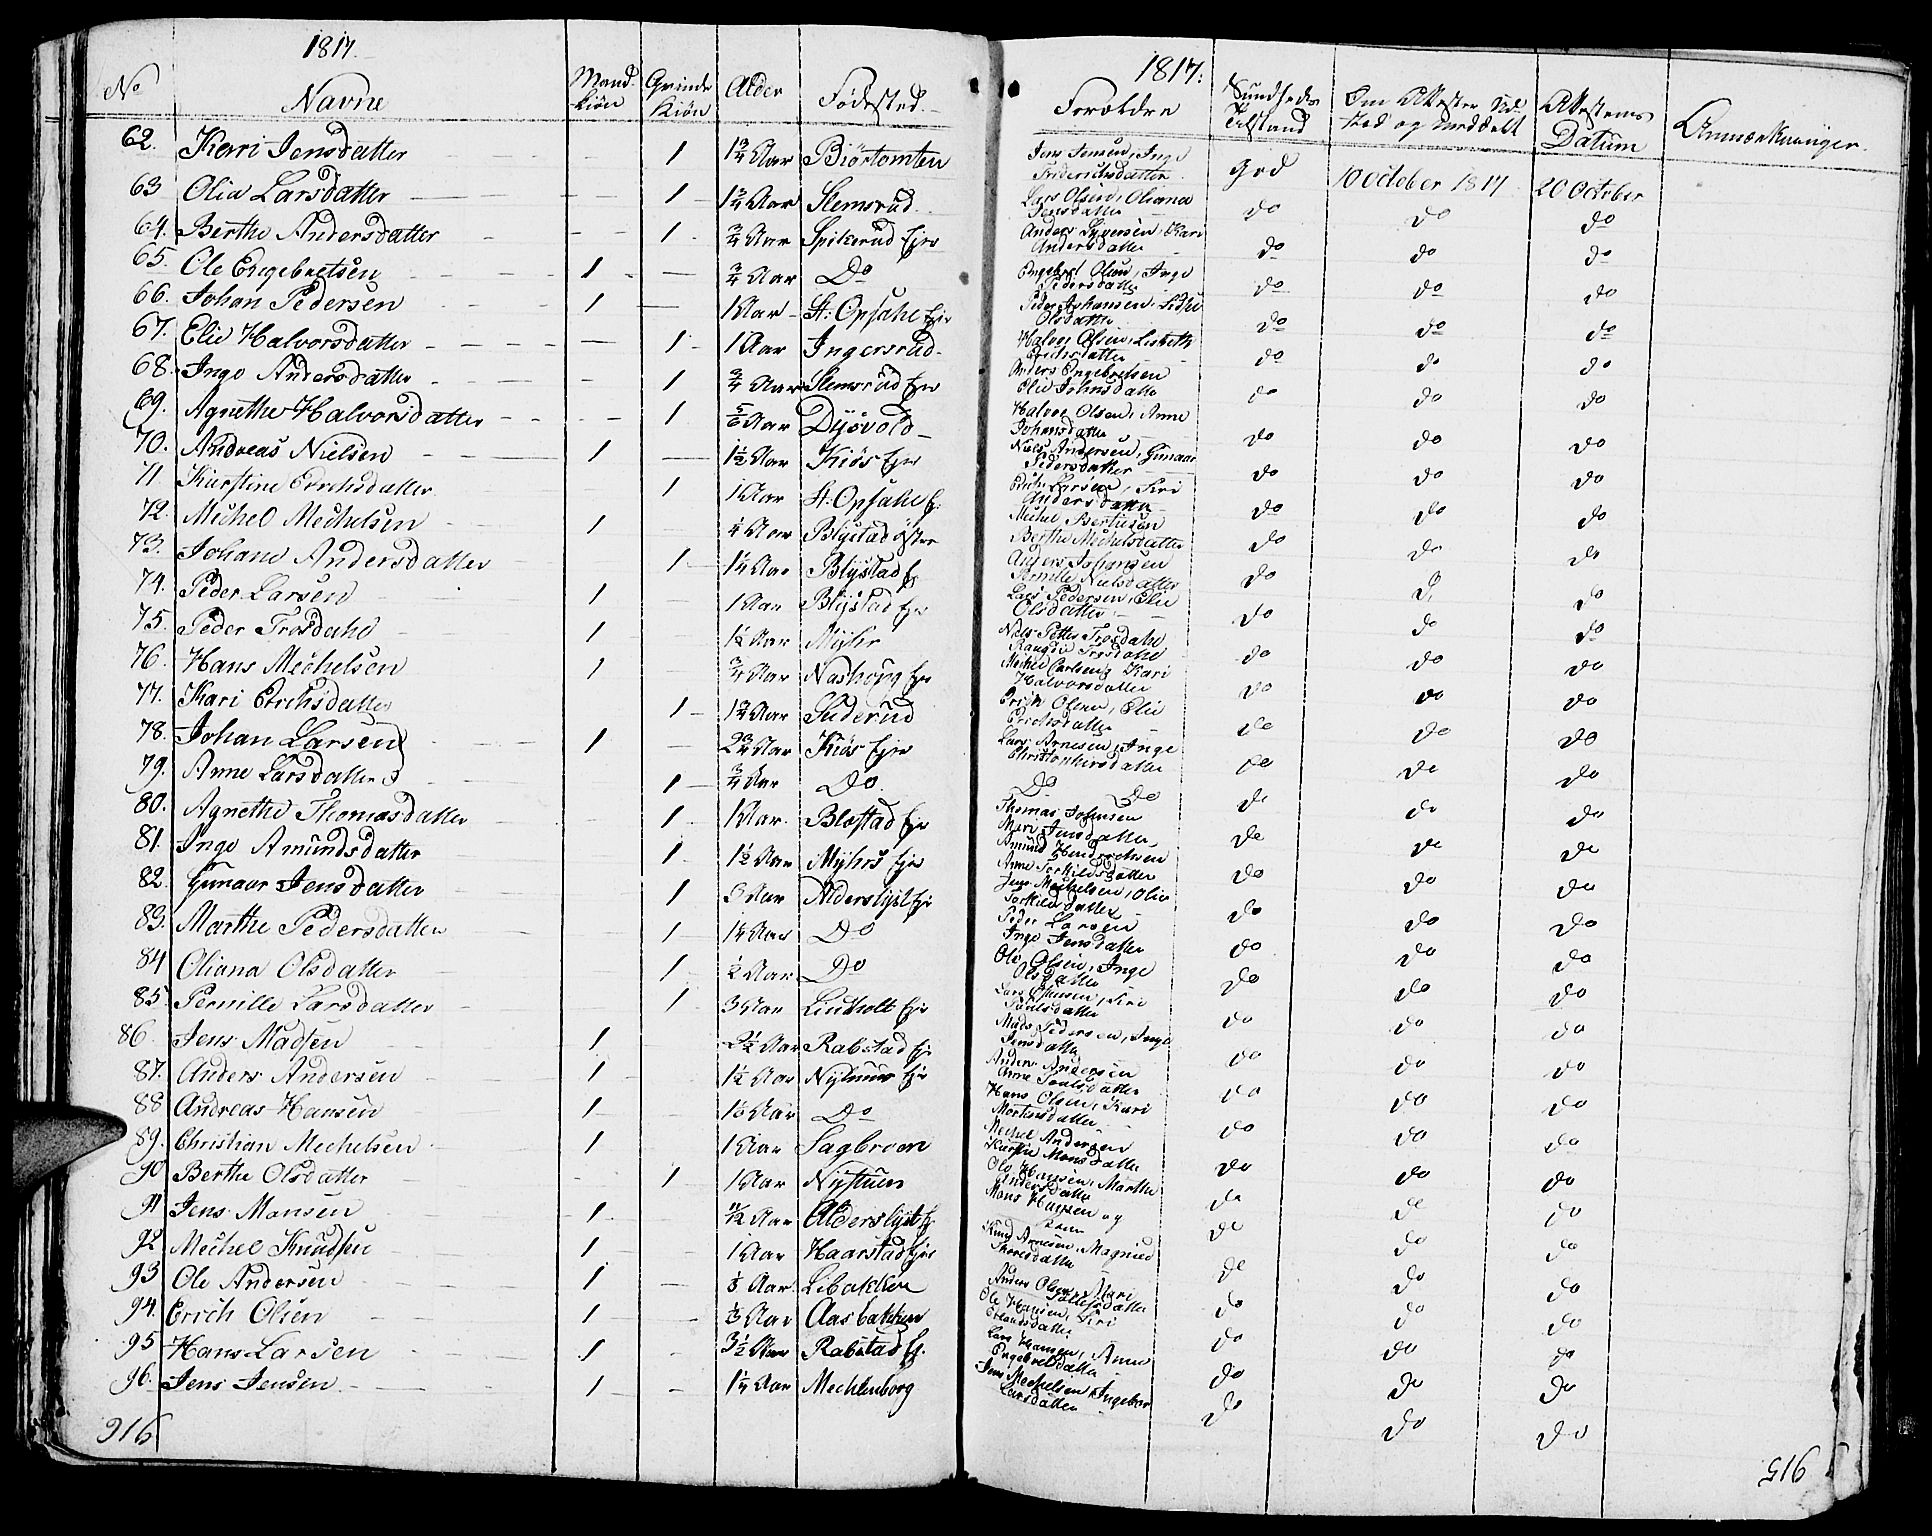 1817.
No Navne Mand-kiøn Qvinde Kiøn Alder Fødested
62. Kari Jensdatter 1 1 3/4 Aar Biørtomten
63 Olia Larsdatter 1 1 3/4 Aar Slemsrud
64. Berthe Andersdatter 1 3/4 Aar Spikerud Eje
65. Ole Engebretsen 1 3/4 Aar Do
66. Johan Pedersen 1 1 Aar St: Opsahl Eje
67. Elie Halvorsdatter 1 1 Aar Ingersrud
68. Inge Andersdatter 1 3/4 Aar Slemsrud Eje
69. Agnethe Halvorsdatter 1 5/6 Aar Dysvold
70. Andreas Nielsen 1 1 1/2 Aar Kiøs Eje
71 Kirstine Erichsdatter 1 1 Aar St: Opsahl E:
72. Michel Mechelsen 1 Aar Blystad østre
73. Johane Andersdatter 1 1 1/4 Aar Blystad E
74. Peder Larsen 1 1 Aar Blystad Eje
75. Peder Trosdahl 1 1 1/2 Aar Myhr
76. Hans Mechelsen 1 3/4 Aar Nashoug Eje
77. Kari Erichsdatter 1 1 3/4 Aar Suderud
78. Johan Larsen 1 2 3/4 Aar Kiøs Eje
79. Anne Larsdatter 1 3/4 Aar Do
80. Agnethe Thomasdatter 1 1 Aar Blæstad Eje
81. Inge Amundsdatter 1 1 1/2 Aar Myhrs Eje
82. Gunaar Jensdatter 1 3 Aar Alderslyst Eje
83. Marthe Pedersdatter 1 1 1/4 Aar Do
84 Oliana Olsdatter 1 1/2 Aar Do
85. Pernille Larsdatter 1 3 Aar Lindholt Eje
86. Jens Madsen 1 2 1/2 Aar Rabstad Eje
87. Anders Andersen 1 1 1/2 Aar Nytuun Eje
88 Andreas Hansen 1 Aar Do
89. Christian Mechelsen 1 1 Aar Sagbroen
90 Berthe Olsdatter 1 1 Aar Nystuen
91 Jens Monsen 1 Aar Alderslyst E
92 Mechel Knudsen 1 1 Aar Haarstad Eje
93 Ole Andersen 1 Aar Libakken
94. Erich Olsen 1 Aar Aasbakken
95 Hans Larsen 1 3 1/2 Aar Rabstad E.
96. Jens Jensen 1 1 1/4 Aar Mechlenborg
916
1817.
Forældre Sundheds Tilstand Om Attester Ud- sted og meddelt Attestens Datum Anmærkninger
Jens Jensen, Inge
Friderichsdatter God 10 October 1817 20 October
Lars Olsen, Oliana
Jensdatter do do do
Anders Syversen, Kari
Andersdatter do do do
Engebret Olsen, Inge
Pedersdatter do do do
Peder Johansen,
Olsdatter do do do
Halvor Olsen, Lisbeth
Erichsdatter do do do
Anders Engebretsen
Olia Johnsdatter do do do
Halvor Olsen, Anne
Johansdatter do do do
Niels Andersen, Gunaar
Pedersdatter do do do
Erich Larsen, Siri
Andersdatter do do do
Mechel
Berthe Mechelsdatter do do do
Anders Johansen
Pernille Nielsdatter do do
Lars Pedersen, Elie
Olsdatter do do do
Niels Petter Trosdahl
Trosdahl do do do
Mechel Carlsen, Kari
Halvorsdatter do do do
Erich Olsen, Elie
Erichsdatter do do do
Lars Arnesen, Inge
Christophersdatter do do do
Do Do do do do
Thomas Johnsen
Mari Jensdatter do do do
Amund Henderichsen
Anne Torkildsdatter do do do
Jens Mechelsen, Olia
Torkildsdatter do do do
Peder Larsen
Inge Jensdatter do do do
Ole Olsen, Inge
Olsdatter do do do
Lars Siri
Paulsdatter do do do
Mads Pedersen, Inge
Jensdatter do do do
Anders Andersen
Anne Poulsdatter do do do
Hans Olsen, Kari
Mortensdatter do do do
Mechel Andersen
Monsdatter do do do
Ole Hansen, Marthe
Andersdatter do do do
Mons Hansen og
do do do
Knud Arnesen, Magnild
do do do
Anders Olsen, Mari
do do do
Ole Hansen, Siri
Erlandsdatter do do do
Lars Hansen, Anne
Engebretsdatter do do do
Jens Mechelsen, Ingebor
Larsdatter do do do
516